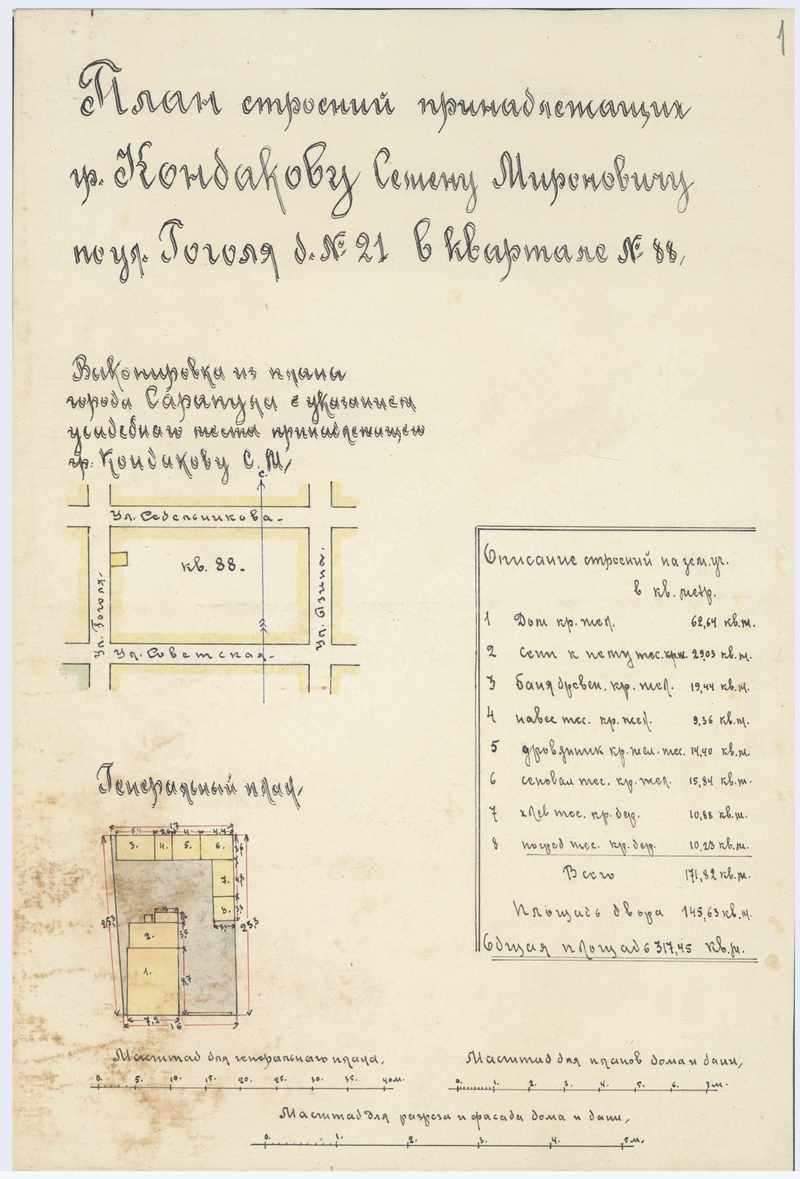 1
План строений принадлежащих
гр. Кондакову Семену Мироновичу
по ул. Гоголя д. № 21 в квартале № 88,
Выкопировка из плана
города Сарапула с указанием
усадебного места принадлежащего
гр. Кондакову С. М,
с.
Ул. Седельникова.
Ул. Гоголя.
кв. 88.
Ул. Азина.
Ул. Советская.
Описание строений на зем. уч.
в кв. метр.
1 Дом кр. жел. 62,64 кв.м.
2 Сени к нему тес. кр.ж. 29,03 кв.м.
3 баня древен. кр. жел. 19,44 кв.м.
4 навес тес. кр. жел. 9,36 кв.м.
5 дровяник кр. жел. тес. 14,40 кв.м.
6 сеновал тес. кр. жел. 15,84 кв.м.
7 хлев тес. кр. дер. 10,88 кв.м.
8 погреб тес. кр. дер. 10,23 кв.м.
Всего 171,82 кв.м.
Площадь двора 145,63 кв.м.
Общая площадь 317,45 кв.м.
Генеральный план,
17
3. 4. 5. 6.
7.
8.
2.
1.
7,2
16
Масштаб для генерального плана,
0. 5. 10. 15. 20. 25. 30. 35. 40 м.
Масштаб для планов дома и бани,
0. 1. 2. 3. 4. 5. 6. 7 м.
Масштаб для разреза и фасада дома и бани,
0. 1. 2. 3. 4. 5 м,